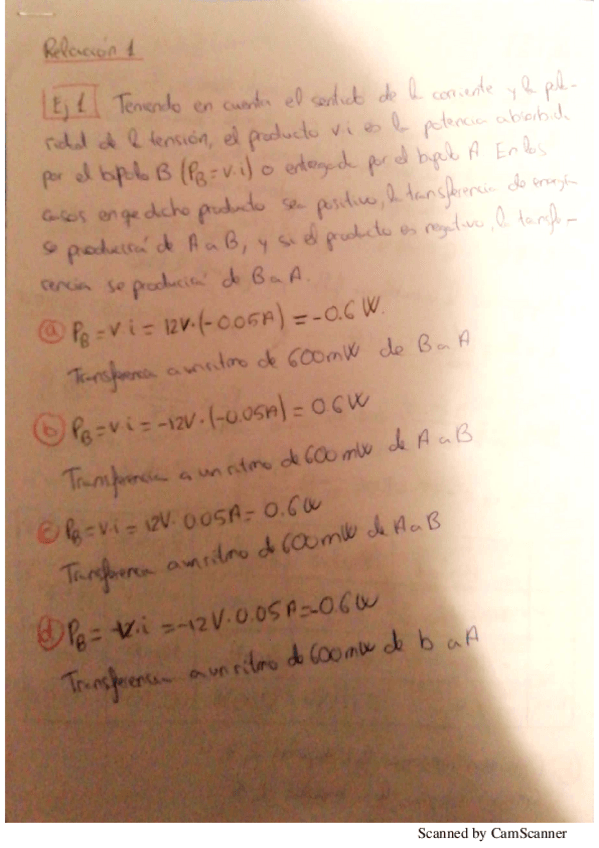 Relación 1
Ej 1 Teniendo en cuenta el sentido de la corriente y la pola-
ridad de la tensión, el producto v·i es la potencia absorbida
por el bipolo B (PB = v·i) o entregada por el bipolo A. En los
casos en que dicho producto sea positivo, la transferencia de energía
se producirá de A a B, y si el producto es negativo, la transfe-
rencia se producirá de B a A.
a) PB = v·i = 12V·(-0.05A) = -0.6W.
Transferencia a un ritmo de 600mW de B a A
b) PB = v·i = -12V·(-0.05A) = 0.6W
Transferencia a un ritmo de 600mW de A a B
c) PB = v·i = 12V·0.05A = 0.6W
Transferencia a un ritmo de 600mW de A a B
d) PB = v·i = -12V·0.05A = -0.6W
Transferencia a un ritmo de 600mW de b a A
Scanned by CamScanner